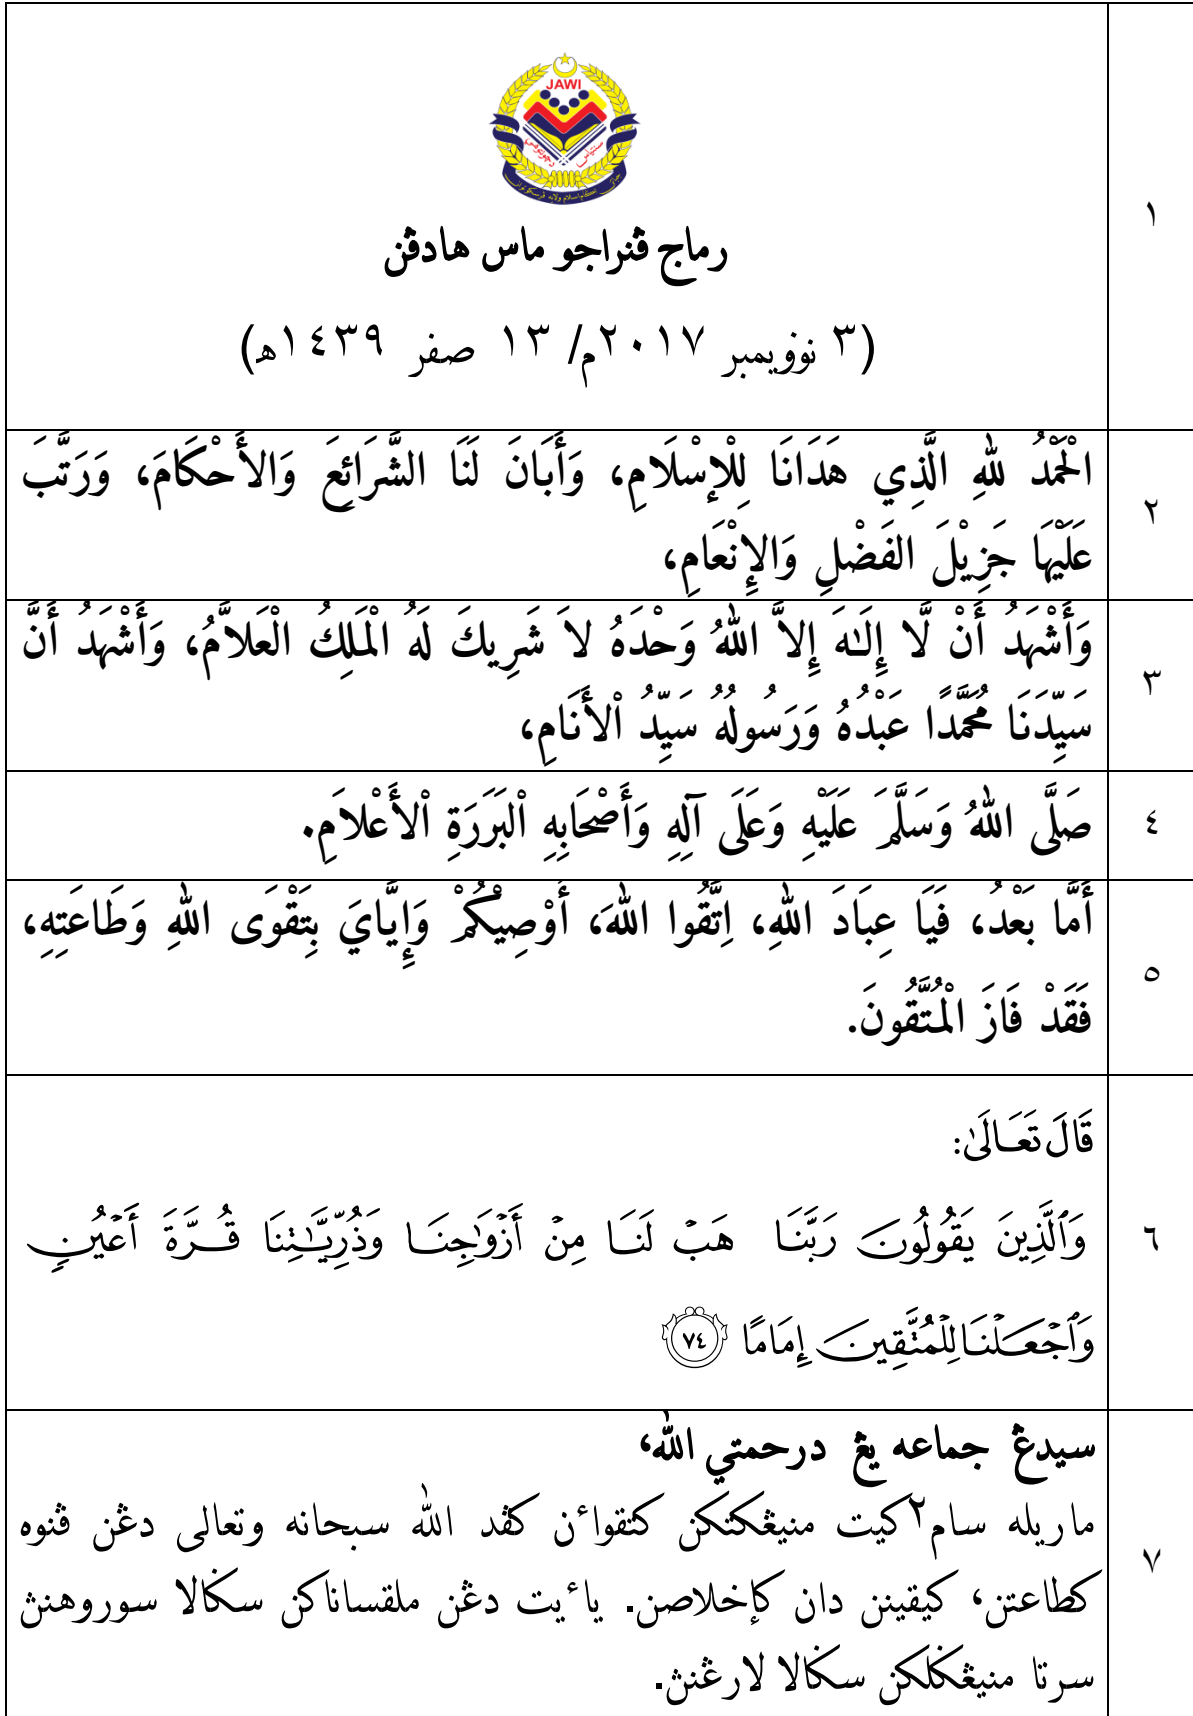 JAWI
١
رماج ڤنراجو ماس هادڤن
(٣ نوۏيمبر ٢٠١٧م/ ١٣ صفر ١٤٣٩هـ)
٢
الْحَمْدُ للهِ الَّذِي هَدَانَا لِلْإِسْلَامِ، وَأَبَانَ لَنَا الشَّرَائِعَ وَالأَحْكَامَ، وَرَتَّبَ
عَلَيْهَا جَزِيْلَ الفَضْلِ وَالإِنْعَامِ،
٣
وَأَشْهَدُ أَنْ لَّا إِلَـٰهَ إِلاَّ اللهُ وَحْدَهُ لاَ شَرِيكَ لَهُ الْمَلِكُ الْعَلاَّمُ، وَأَشْهَدُ أَنَّ
سَيِّدَنَا مُحَمَّدًا عَبْدُهُ وَرَسُولُهُ سَيِّدُ اْلأَنَامِ،
٤
صَلَّى اللهُ وَسَلَّمَ عَلَيْهِ وَعَلَى آلِهِ وَأَصْحَابِهِ اْلبَرَرَةِ اْلأَعْلاَمِ.
٥
أَمَّا بَعْدُ، فَيَا عِبَادَ اللهِ، اِتَّقُوا اللهَ، أُوْصِيْكُمْ وَإِيَّايَ بِتَقْوَى اللهِ وَطَاعَتِهِ،
فَقَدْ فَازَ الْمُتَّقُونَ.
٦
قَالَ تَعَالَىٰ:
وَٱلَّذِينَ يَقُولُونَ رَبَّنَا هَبْ لَنَا مِنْ أَزْوَٰجِنَا وَذُرِّيَّـٰتِنَا قُرَّةَ أَعْيُنٍ
وَٱجْعَلْنَا لِلْمُتَّقِينَ إِمَامًا ٧٤
٧
سيدڠ جماعه يڠ درحمتي الله،
ماريله سام٢ كيت منيڠكتكن كتقواءن كڤد الله سبحانه وتعالى دڠن ڤنوه
كطاعتن، كيقينن دان كإخلاصن. ياءيت دڠن ملقساناكن سݢالا سوروهنڽ
سرتا منيڠݢلكن سݢالا لارڠنڽ.